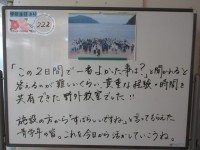 222
「この2日間で一番よかった事は?」と聞かれると
答えるのが難しいくらい、貴重な経験・時間を
共有できた野外教室でした!!
施設の方から「すばらしいですね」と言ってもらえた
青学年の皆。これを今日から活かしていこうね。